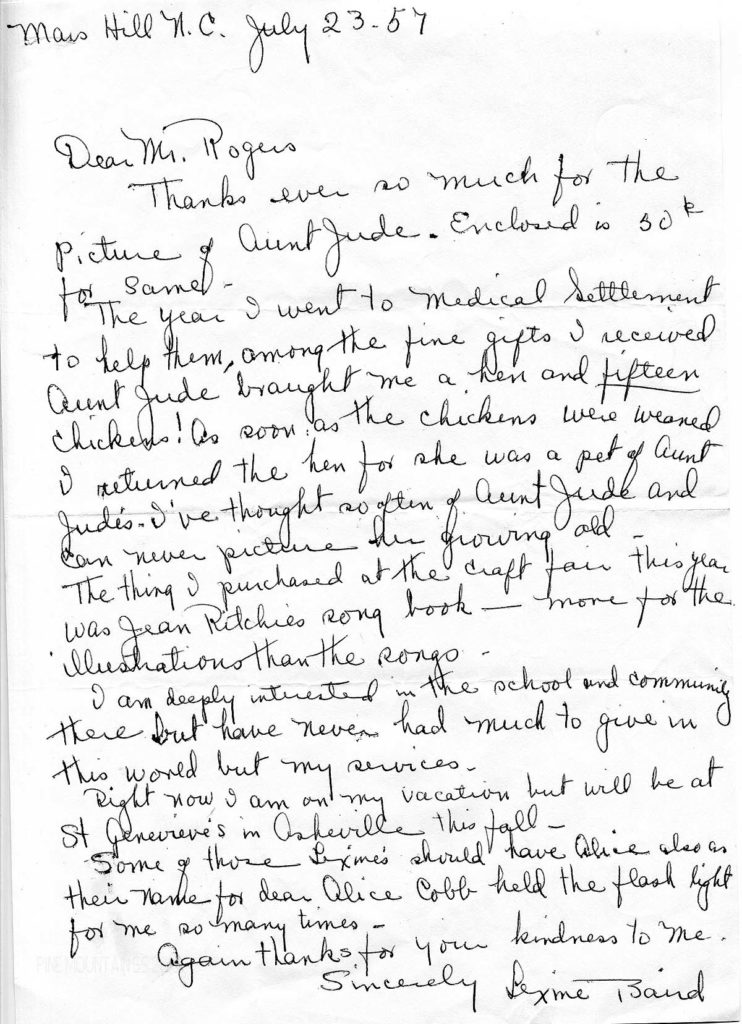 Mars Hill N.C. July 23-57
Dear Mr. Rogers
Thanks ever so much for the
picture of Aunt Jude. Enclosed is 50¢
for same -
The year I went to Medical Setttlement
to help them, among the fine gifts I received
Aunt Jude braught me a hen and fifteen
chickens! As soon as the chickens were weaned
I returned the hen for she was a pet of Aunt
Jude's. I've thought so often of Aunt Jude and
can never picture her growing old -
The thing I purchased at the craft fair this year
was Jean Ritchies song book — more for the
illustrations than the songs -
I am deeply interested in the school and community
there but have never had much to give in
this world but my services -
Right now I am on my vacation but will be at
St Genevieve's in Asheville this fall -
Some of those Lexine's should have Alice also as
their name for dear Alice Cobb held the flash light
for me so many times -
Again thanks for your kindness to me.
Sincerely Lexine Baird